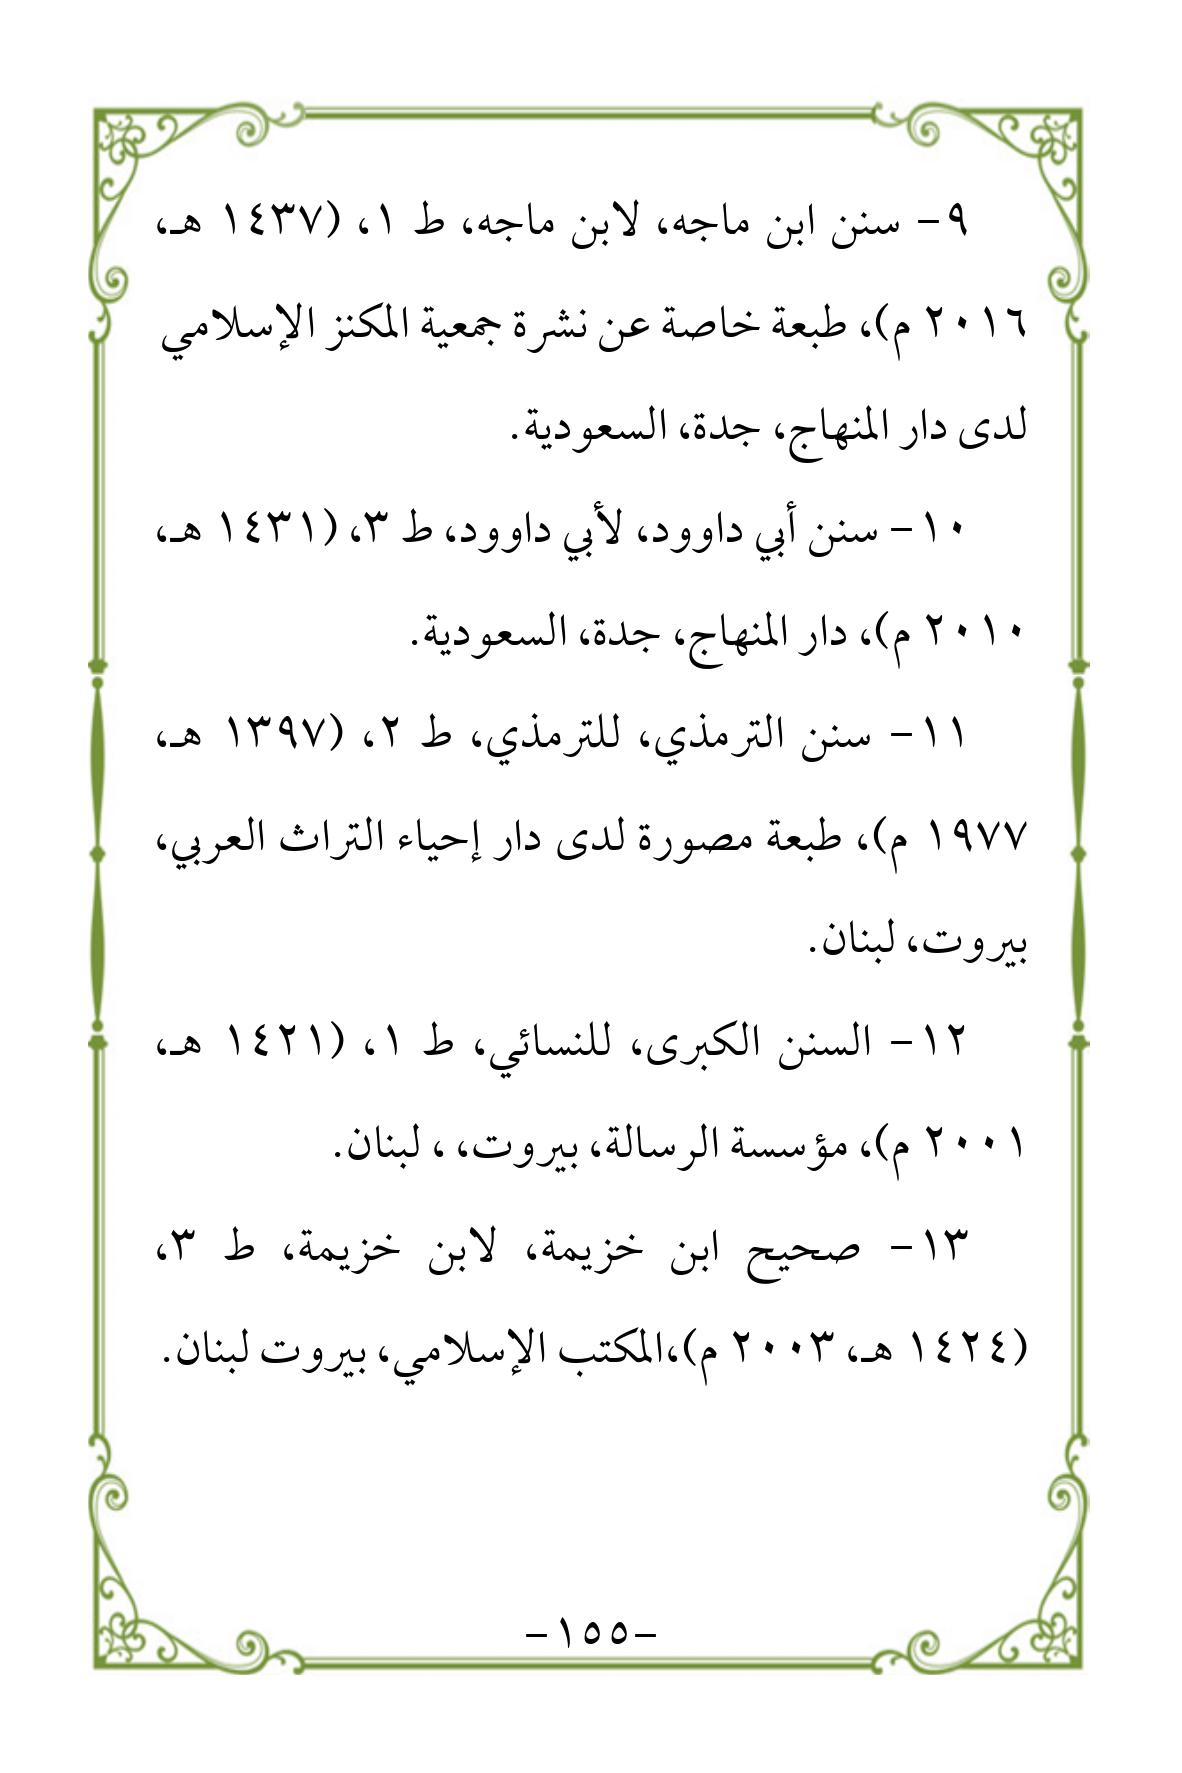 ٩- سنن ابن ماجه، لابن ماجه، ط ١، (١٤٣٧ هـ،
٢٠١٦ م)، طبعة خاصة عن نشرة جمعية المكنز الإسلامي
لدى دار المنهاج، جدة، السعودية.
١٠- سنن أبي داوود، لأبي داوود، ط ٣، (١٤٣١ هـ،
٢٠١٠ م)، دار المنهاج، جدة، السعودية.
١١- سنن الترمذي، للترمذي، ط ٢، (١٣٩٧ هـ،
١٩٧٧ م)، طبعة مصورة لدى دار إحياء التراث العربي،
بيروت، لبنان.
١٢- السنن الكبرى، للنسائي، ط ١، (١٤٢١ هـ،
٢٠٠١ م)، مؤسسة الرسالة، بيروت، ، لبنان.
١٣- صحيح ابن خزيمة، لابن خزيمة، ط ٣،
(١٤٢٤ هـ، ٢٠٠٣ م)،المكتب الإسلامي، بيروت لبنان.
-١٥٥-